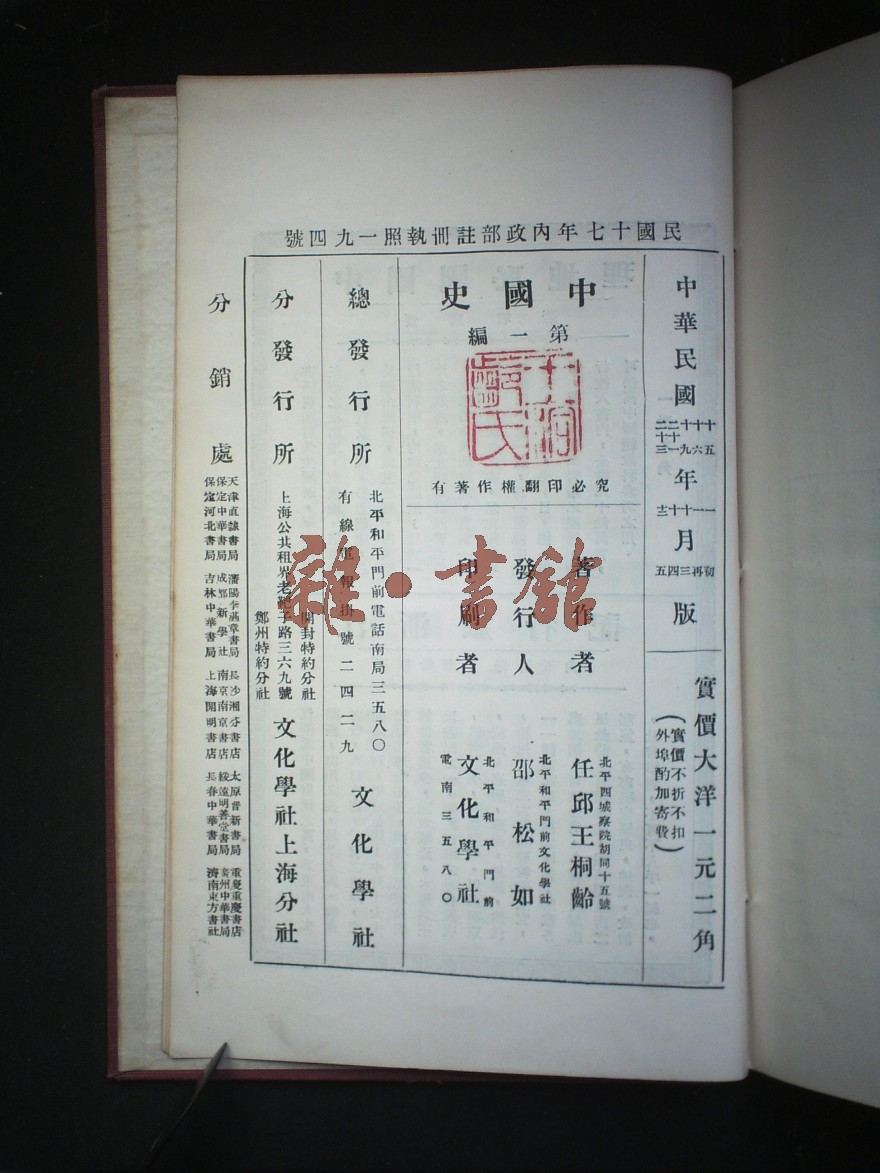 民國十七年內政部註冊執照一九四號
中華民國
十五
十六
十九
二十一
二十三
年
一
一
十
十
十二
月
初
再
三
四
五
版
實價大洋一元二角
（實價不折不扣
外埠酌加寄費）
中國史
第一編
王桐齡氏
有著作權翻印必究
著作者
北平西城察院胡同十五號
任邱王桐齡
發行人
北平和平門前文化學社
邵松如
印刷者
北平和平門前
文化學社
電南三五八〇
總發行所
北平和平門前電話南局三五八〇
有線電報掛號二四二九
文化學社
分發行所
開封特約分社
上海公共租界老靶子路三六九號
鄭州特約分社
文化學社上海分社
分銷處
天津直隸書局
保定中華書局
保定河北書局
成都新學社
吉林中華書局
長沙湘芬書店
南京南京書店
上海開明書店
太原晉新書局
綏遠明善堂書局
長春中華書局
重慶重慶書店
廣州中華書局
濟南東方書社
雜·書館